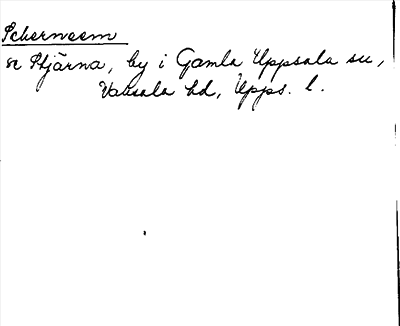 Scherneem
se Stjärna, by i Gamla Uppsala su,
Vaksala hd, Upps. l.